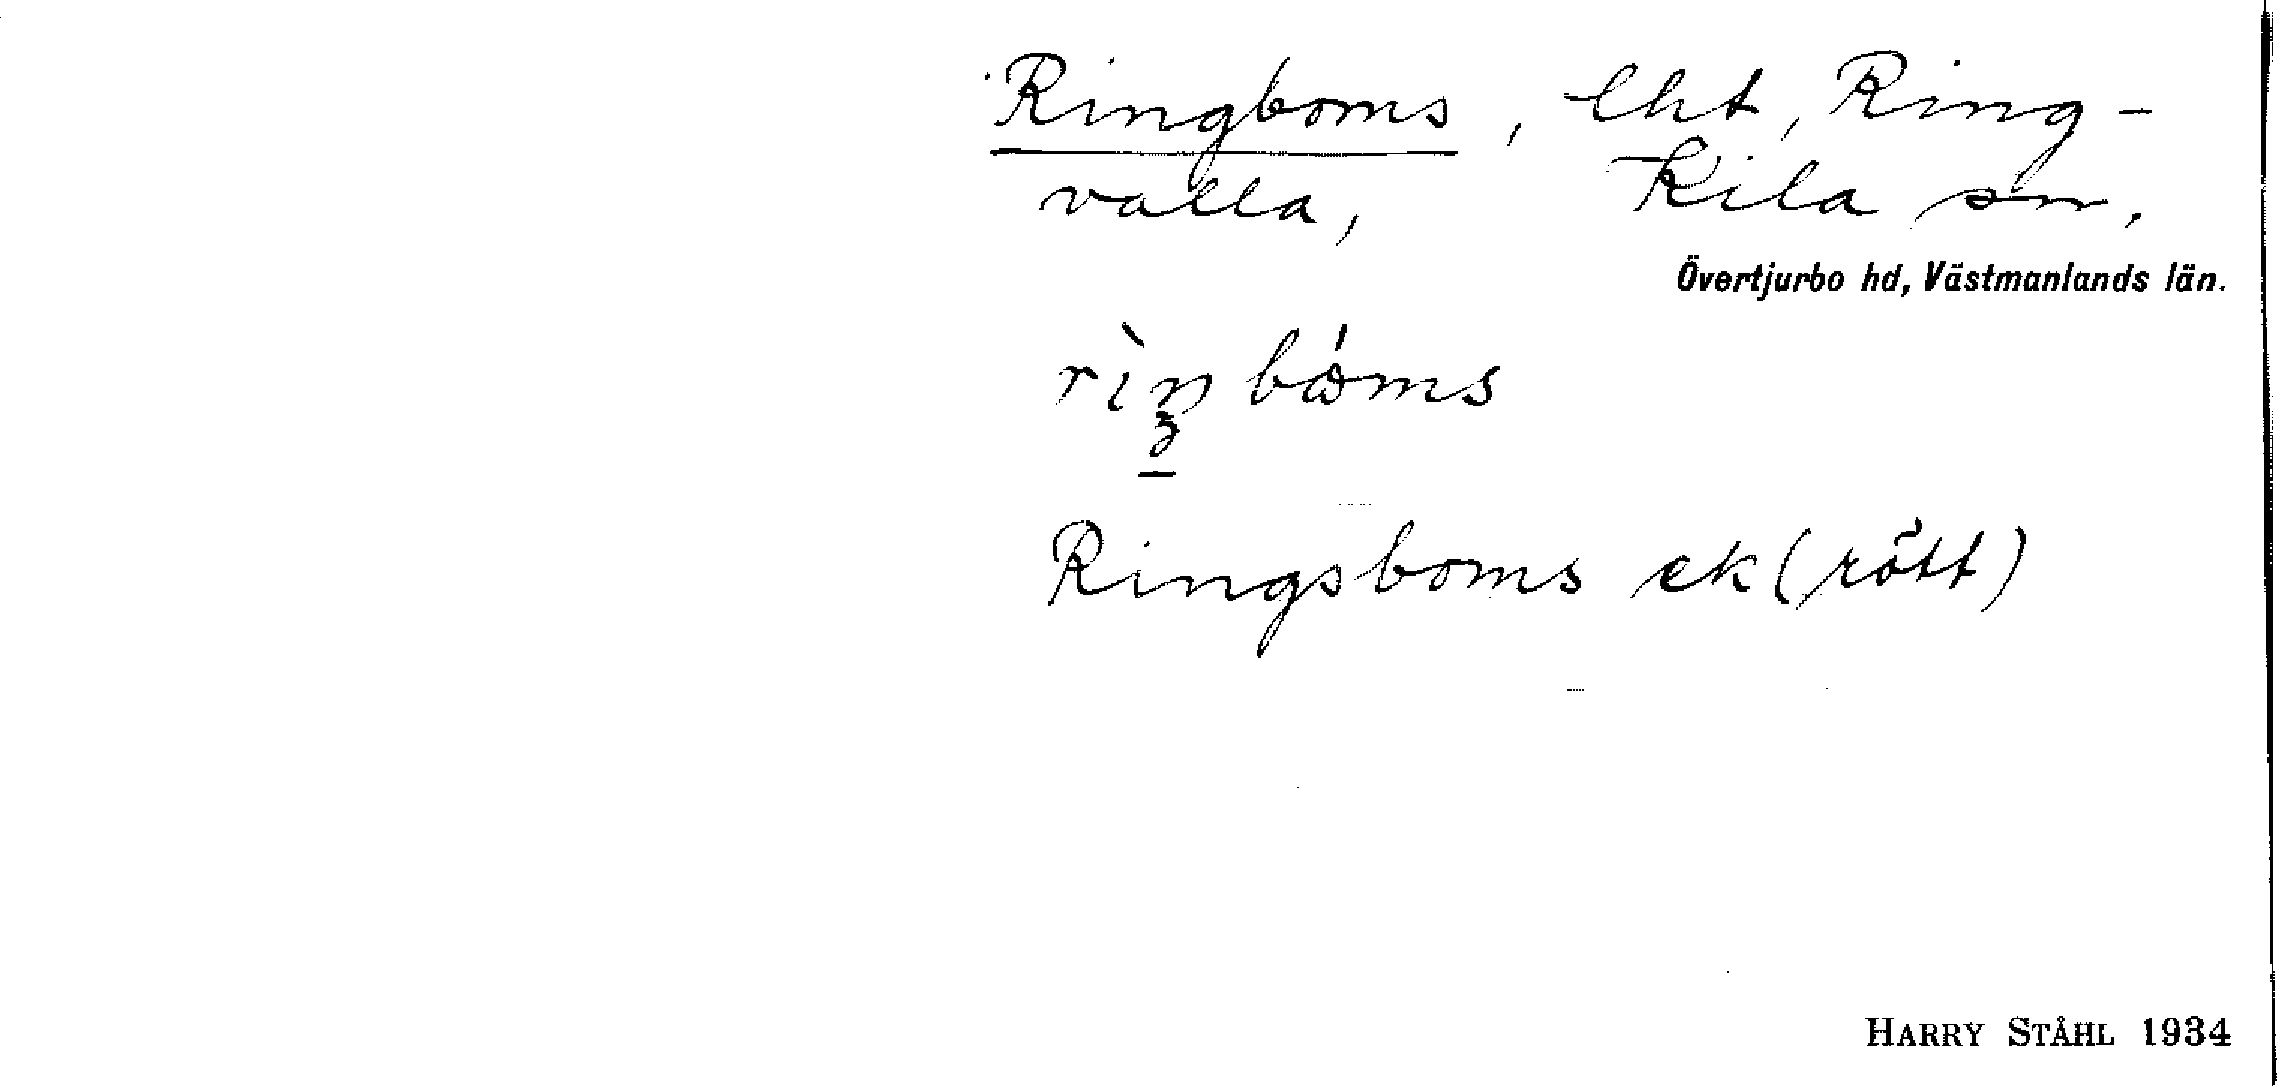 Ringboms, lht, Ring-
valla, Kila sn,
Övertjurbo hd, Västmanlands län.
Ringsboms ek (rött)
HARRY STÅHL 1934